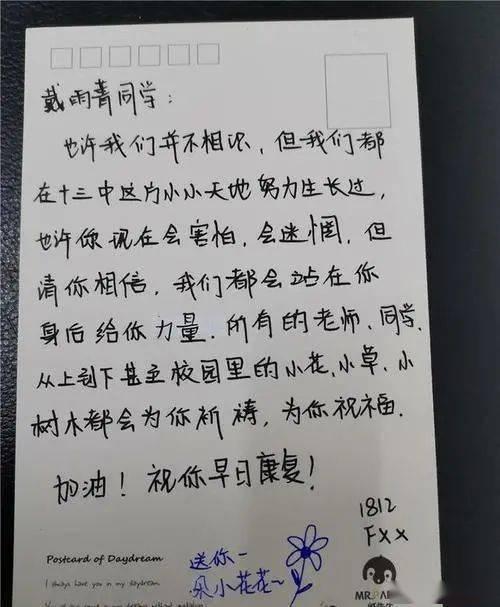 戴雨菁同学：
也许我们并不相识，但我们都
在十三中这片小小天地努力生长过，
也许你现在会害怕，会迷惘，但
请你相信，我们都会站在你
身后给你力量．所有的老师、同学，
从上到下甚至校园里的小花、小草、小
树木都会为你祈祷，为你祝福．
加油！祝你早日康复！
1812
FXX
Postcard of Daydream
I always have you in my daydream.
送你一
朵小花花~
MR.PAI